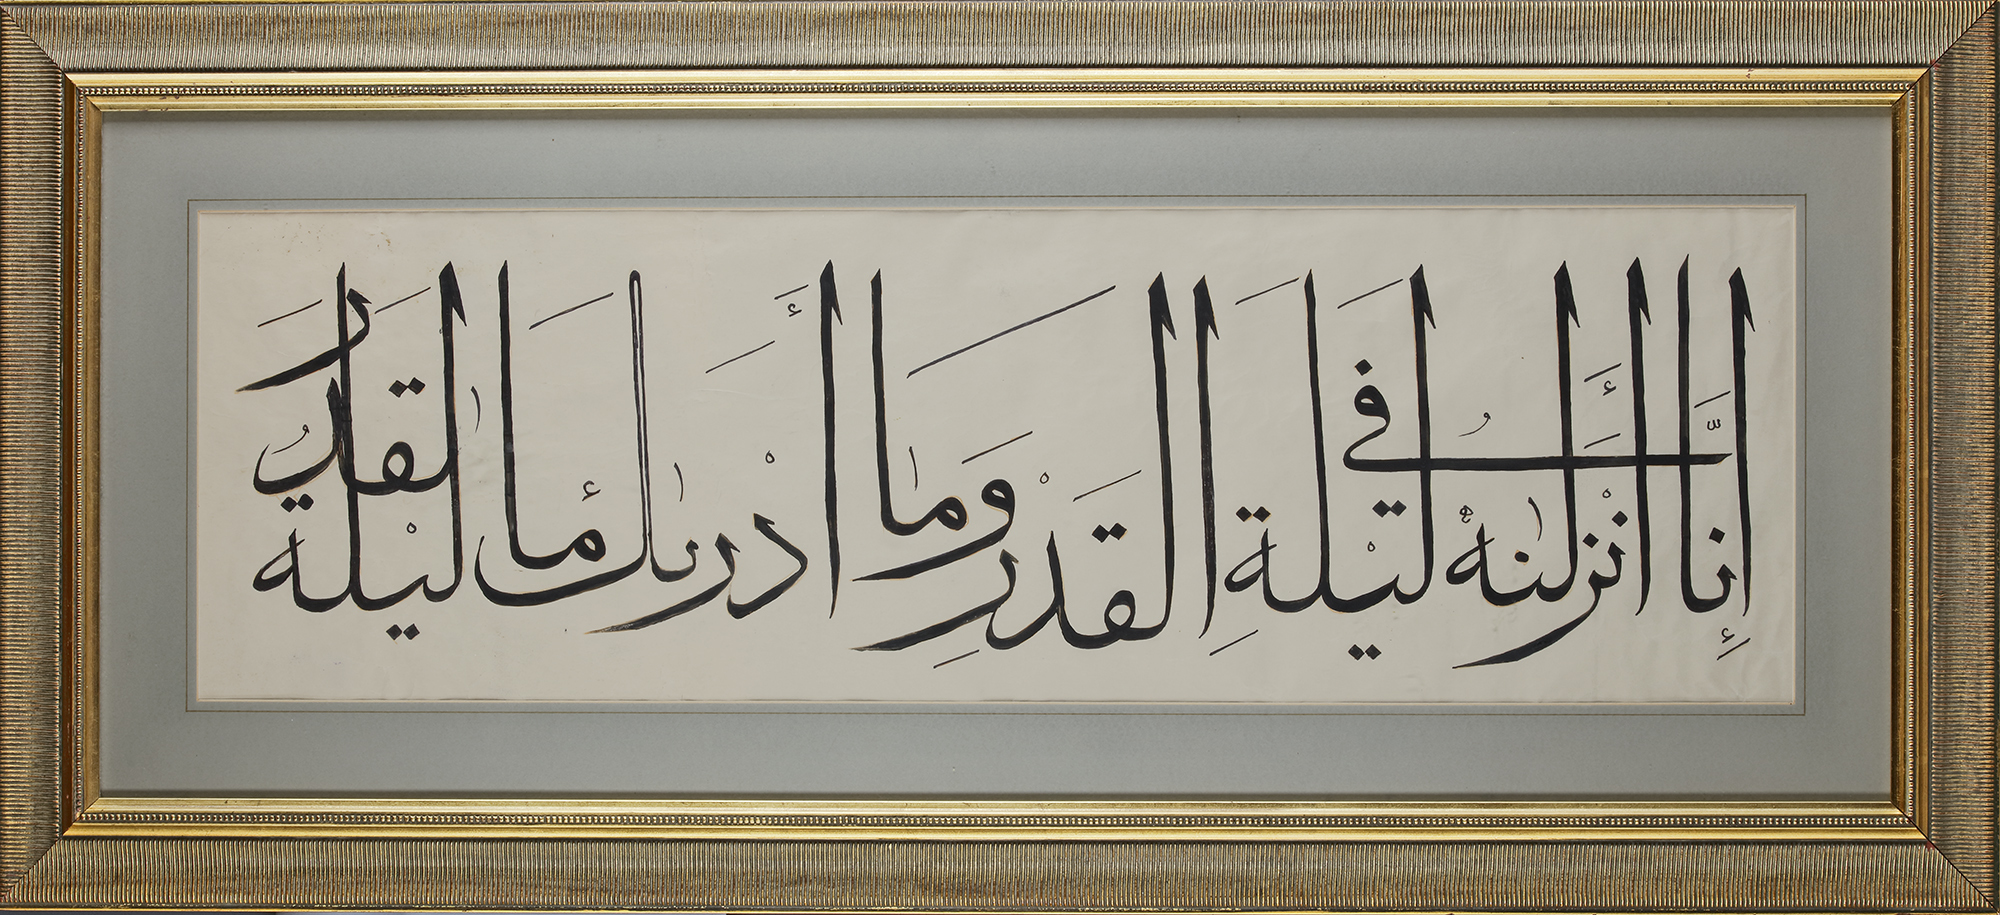 إِنَّا أَنْزَلْنٰهُ فِي لَيْلَةِ الْقَدْرِ وَمَا أَدْرٰىكَ مَا لَيْلَةُ الْقَدْرِ